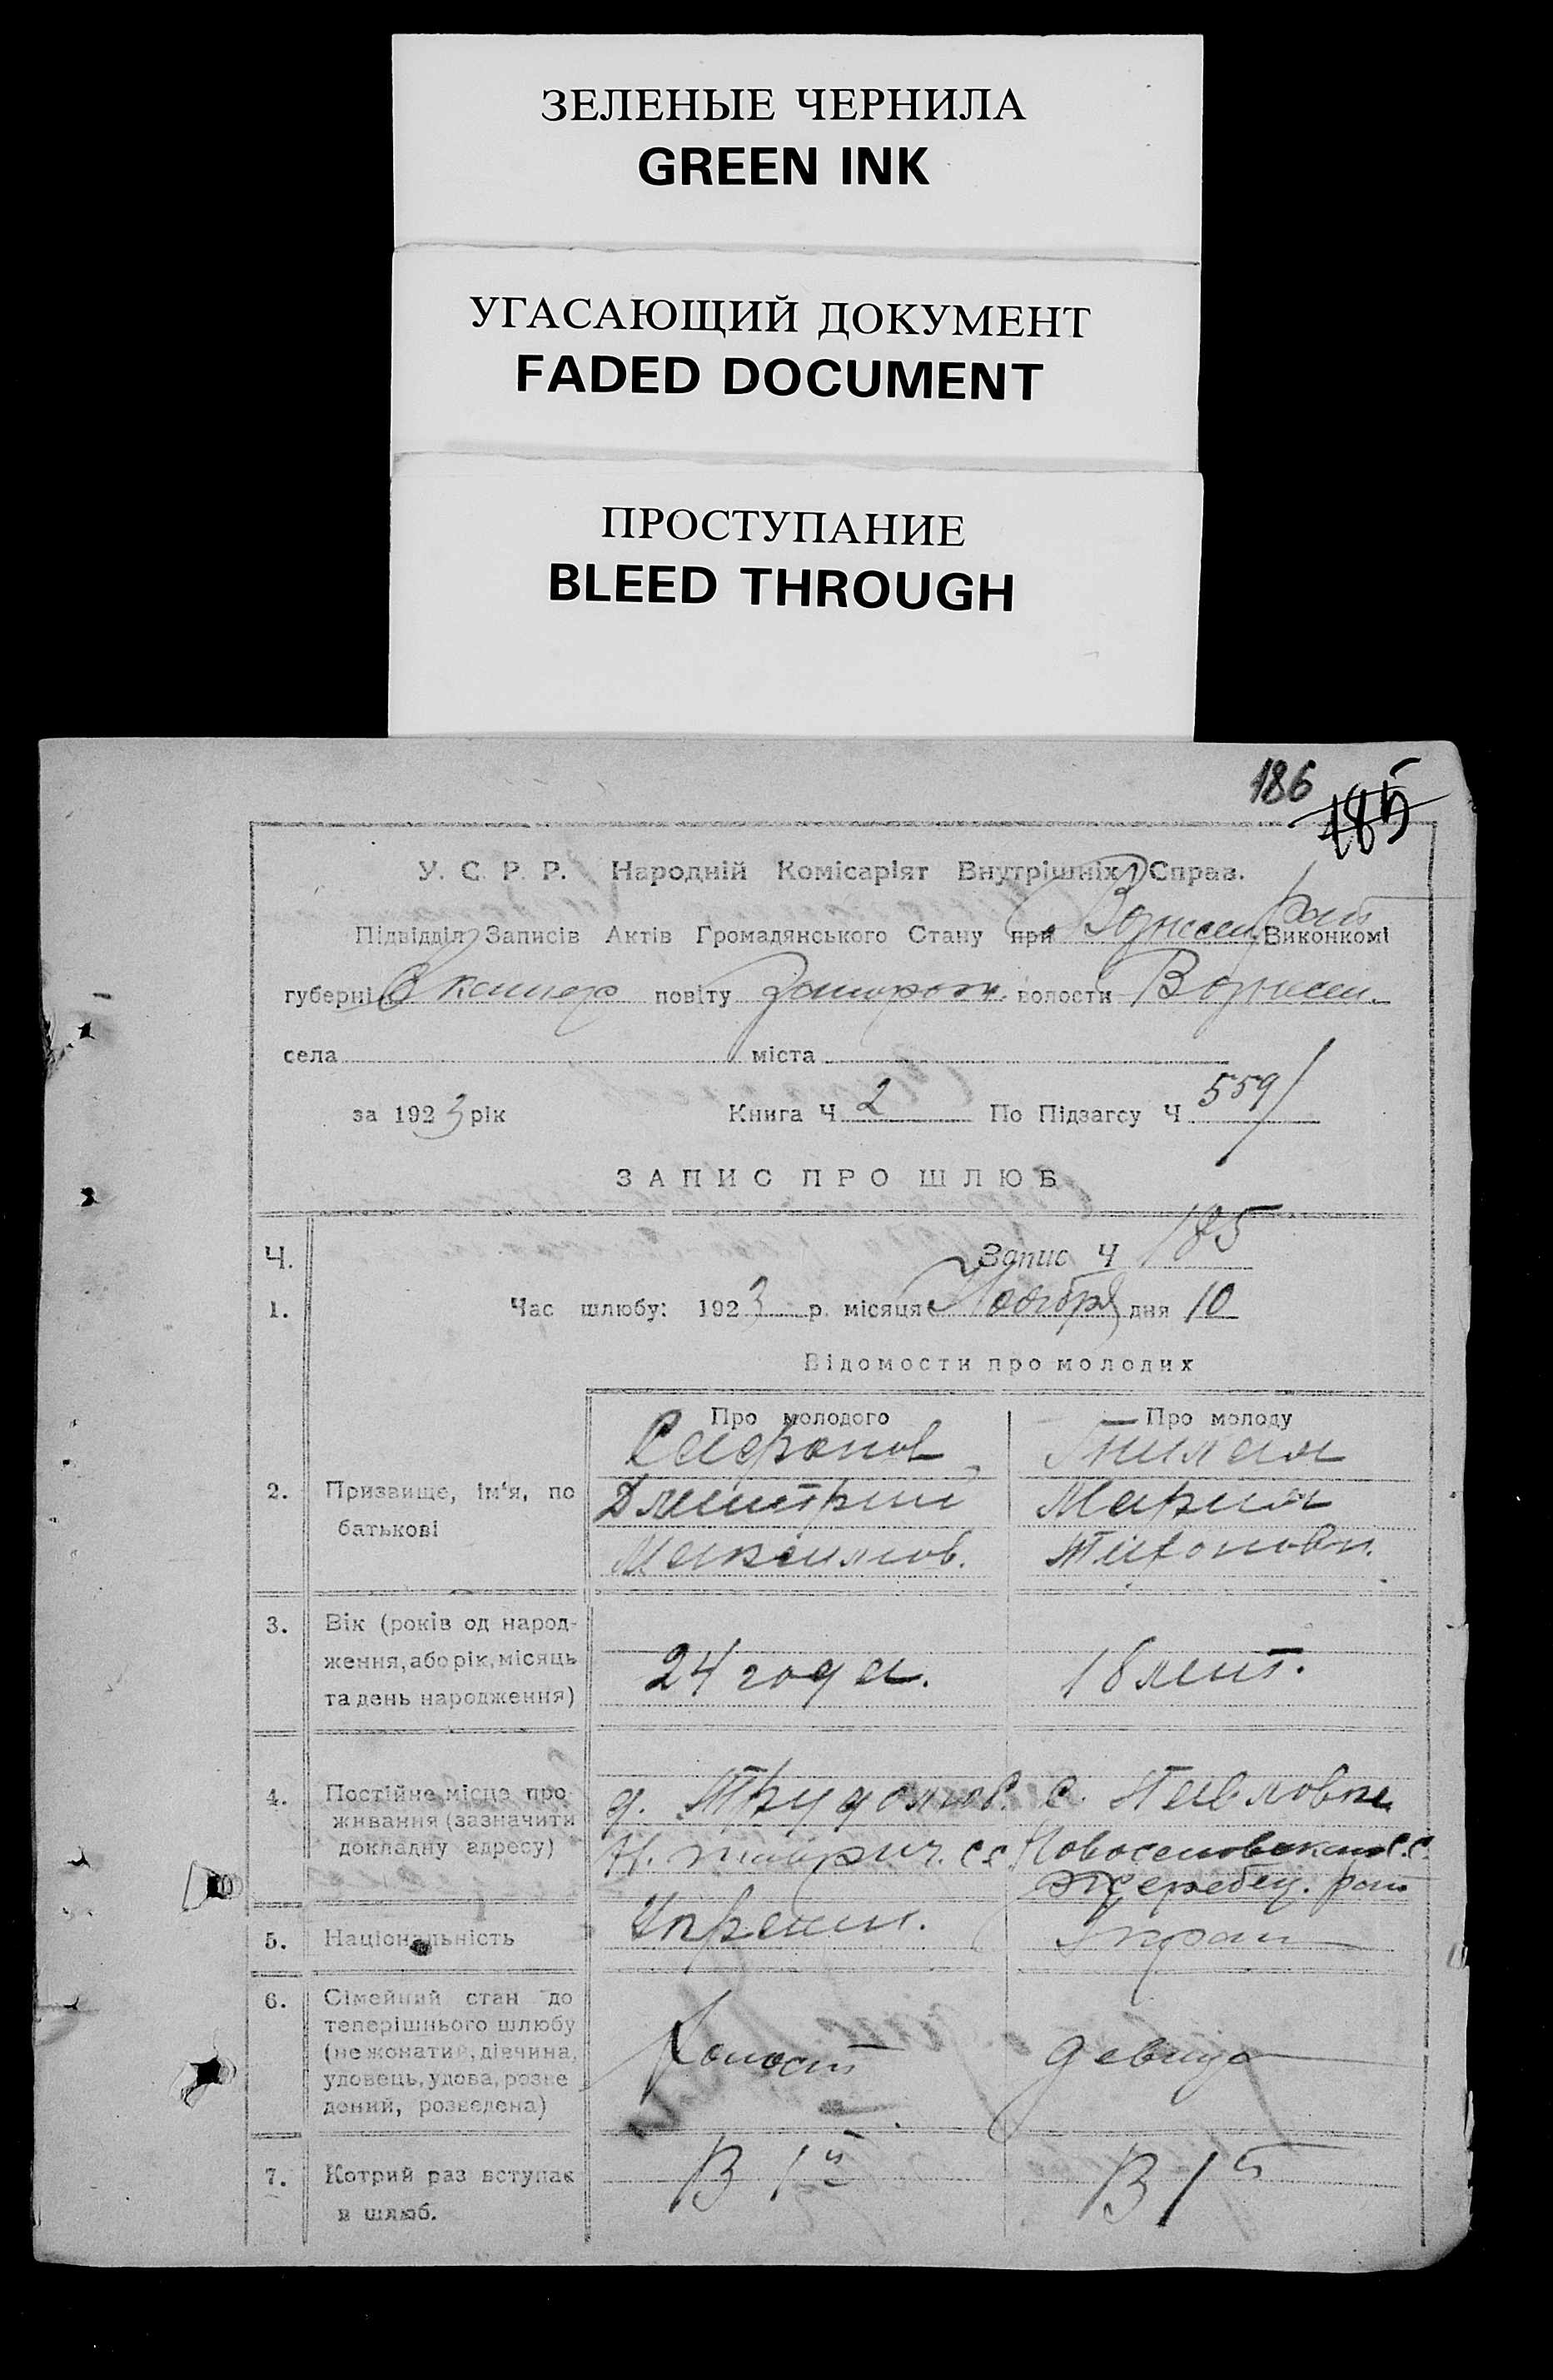 ЗЕЛЕНЫЕ ЧЕРНИЛА
GREEN INK
УГАСАЮЩИЙ ДОКУМЕНТ
FADED DOCUMENT
ПРОСТУПАНИЕ
BLEED THROUGH
186
185
У. С. Р. Р. Народній Комісаріят Внутрішніх Справ.
Підвідділ Записів Актів Громадянського Стану при Вознесен. рай Виконкомі
губерні Екатер повіту Запорож. волости Вознесен.
села міста
за 1923 рік Книга Ч 2 По Підзагсу Ч 559/
ЗАПИС ПРО ШЛЮБ
Ч. Запис Ч 185
1. Час шлюбу: 1923 р. місяця Ноября дня 10
Відомости про молодих
Про молодого Про молоду
Сафонов
2. Призвище, ім'я, по Дмитрий Мария
батькові
Максимов. Тихоновн.
3. Вік (років од народ-
ження, або рік, місяць 24 года. 18 лет.
та день народження)
4. Постійне місце про- д. Трудолюб. с. Павловка
живання (зазначити
докладну адресу) Н. таврич. с.с. с.с.
Жеребец. рай
5. Національність Украин. Украин
6. Сімейний стан до
теперішнього шлюбу
(не жонатий, дівчина, Холост девица
удовець, удова, розве
дений, розведена)
7. Котрий раз вступає В 1й В 1й
в шлюб.